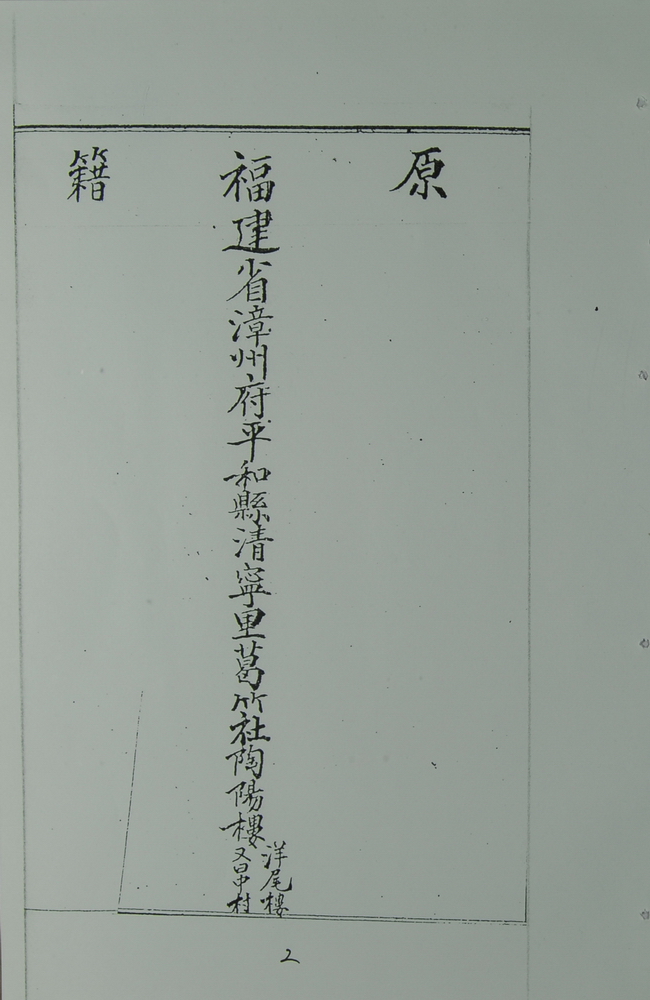 原
福建省漳州府平和縣清寧里葛竹社陶陽樓
洋尾樓
又曰中村
籍
2